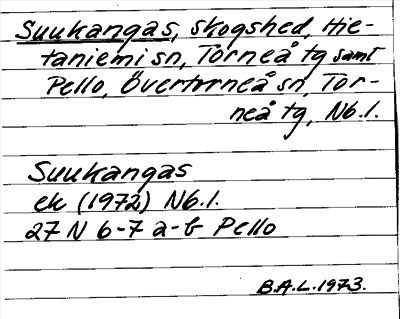 Suukangas, skogshed, Hie-
taniemi sn, Torneå tg samt
Pello, Övertorneå sn, Tor-
neå tg, Nb.l.
Suukangas
ek (1972) Nb.l.
27 N 6-7 a-b Pello
B.A.L.1973.